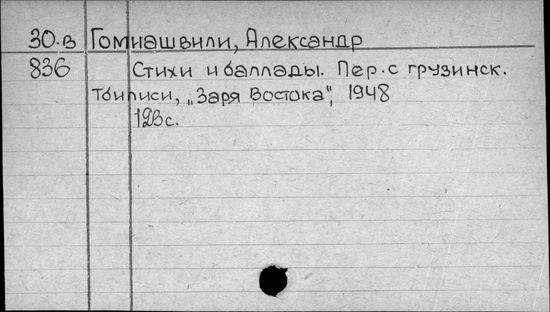 30.в Гомиашвили, Александр
836 Стихи и баллады. Пер. с грузинск.
Тбилиси, „Заря Востока", 1948
123 с.